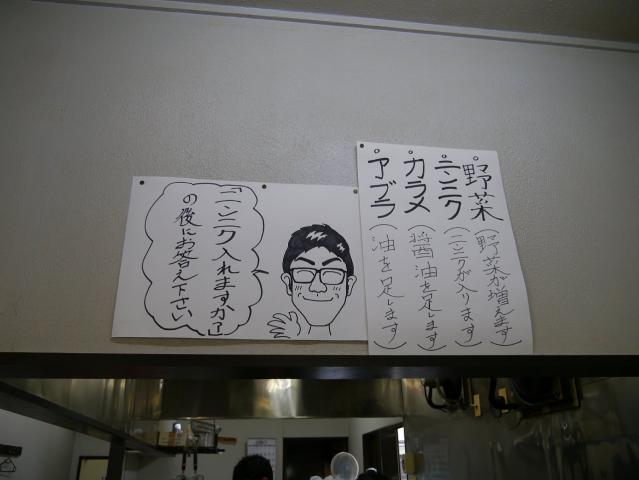 「ニンニク入れますか?」
の後にお答え下さい
野菜(野菜が増えます)
ニンニク(ニンニクが入ります)
カラメ(醤油を足します)
アブラ(油を足します)